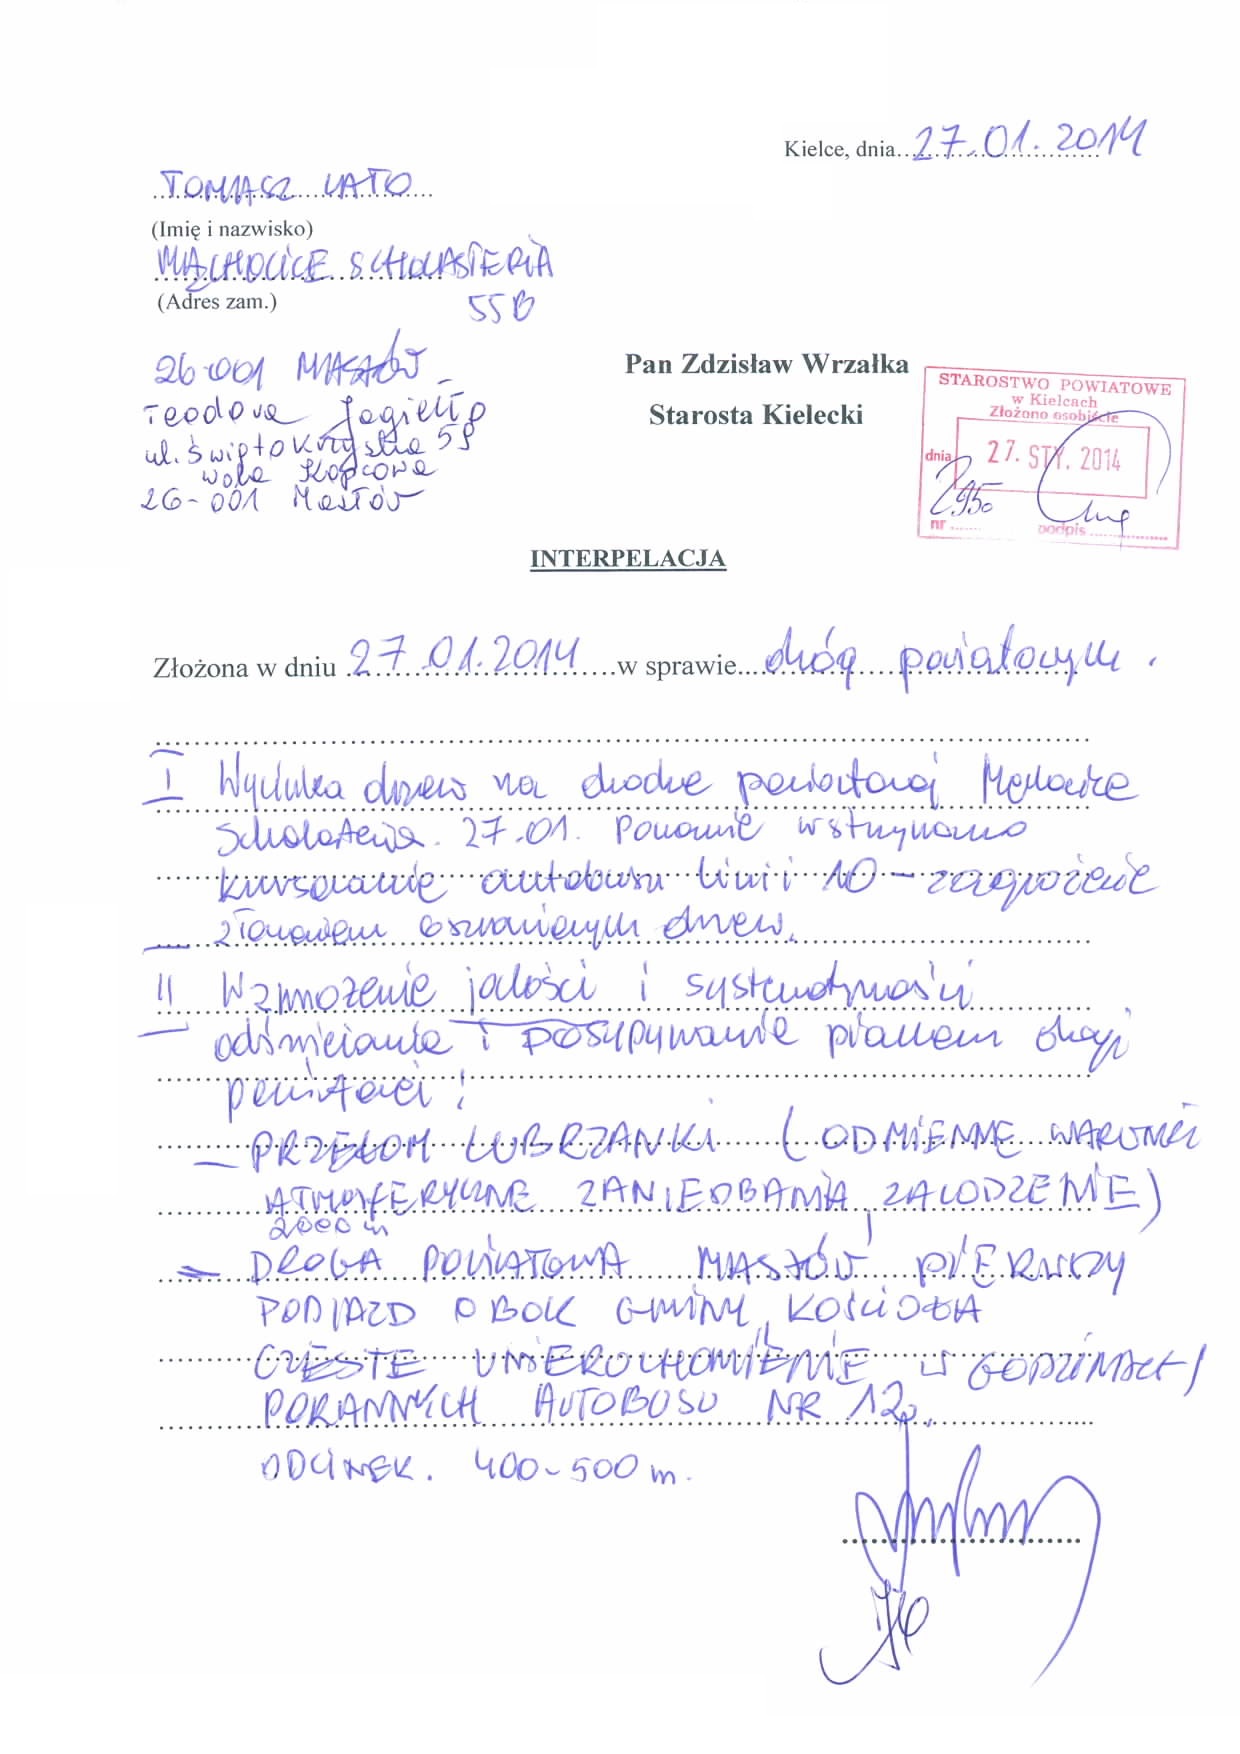 Kielce, dnia 27.01.2014
TOMASZ LATO
(Imię i nazwisko)
MĄCHOCICE SCHOLASTERIA
(Adres zam.)
55B
26-001 MASŁÓW
Teodora Jagiełło
ul. Świętokrzyska 59
Wola Kopcowa
26-001 Masłów
Pan Zdzisław Wrzałka
Starosta Kielecki
STAROSTWO POWIATOWE
w Kielcach
Złożono osobiście
dnia 27. STY. 2014
2950
nr podpis
INTERPELACJA
Złożona w dniu 27.01.2014 w sprawie dróg powiatowych.
I Wycinka drzew na drodze powiatowej Mąchocice
Scholasteria. 27.01. Ponownie wstrzymano
kursowanie autobusu linii 10 - zagrożenie
złamaniem oszronionych drzew.
II Wzmożenie jakości i systematyczności
odśnieżania i posypywanie piaskiem drogi
powiatowej!
- PRZEŁOM LUBRZANKI (ODMIENNE WARUNKI
ATMOSFERYCZNE ZANIEDBANIA, ZALODZENIE)
2000 m
- DROGA POWIATOWA MASŁÓW PIERWSZY
PODJAZD OBOK GMINY, KOŚCIOŁA
CZĘSTE UNIERUCHOMIENIE W GODZINACH
PORANNYCH AUTOBUSU NR 12,
ODCINEK. 400-500 m.